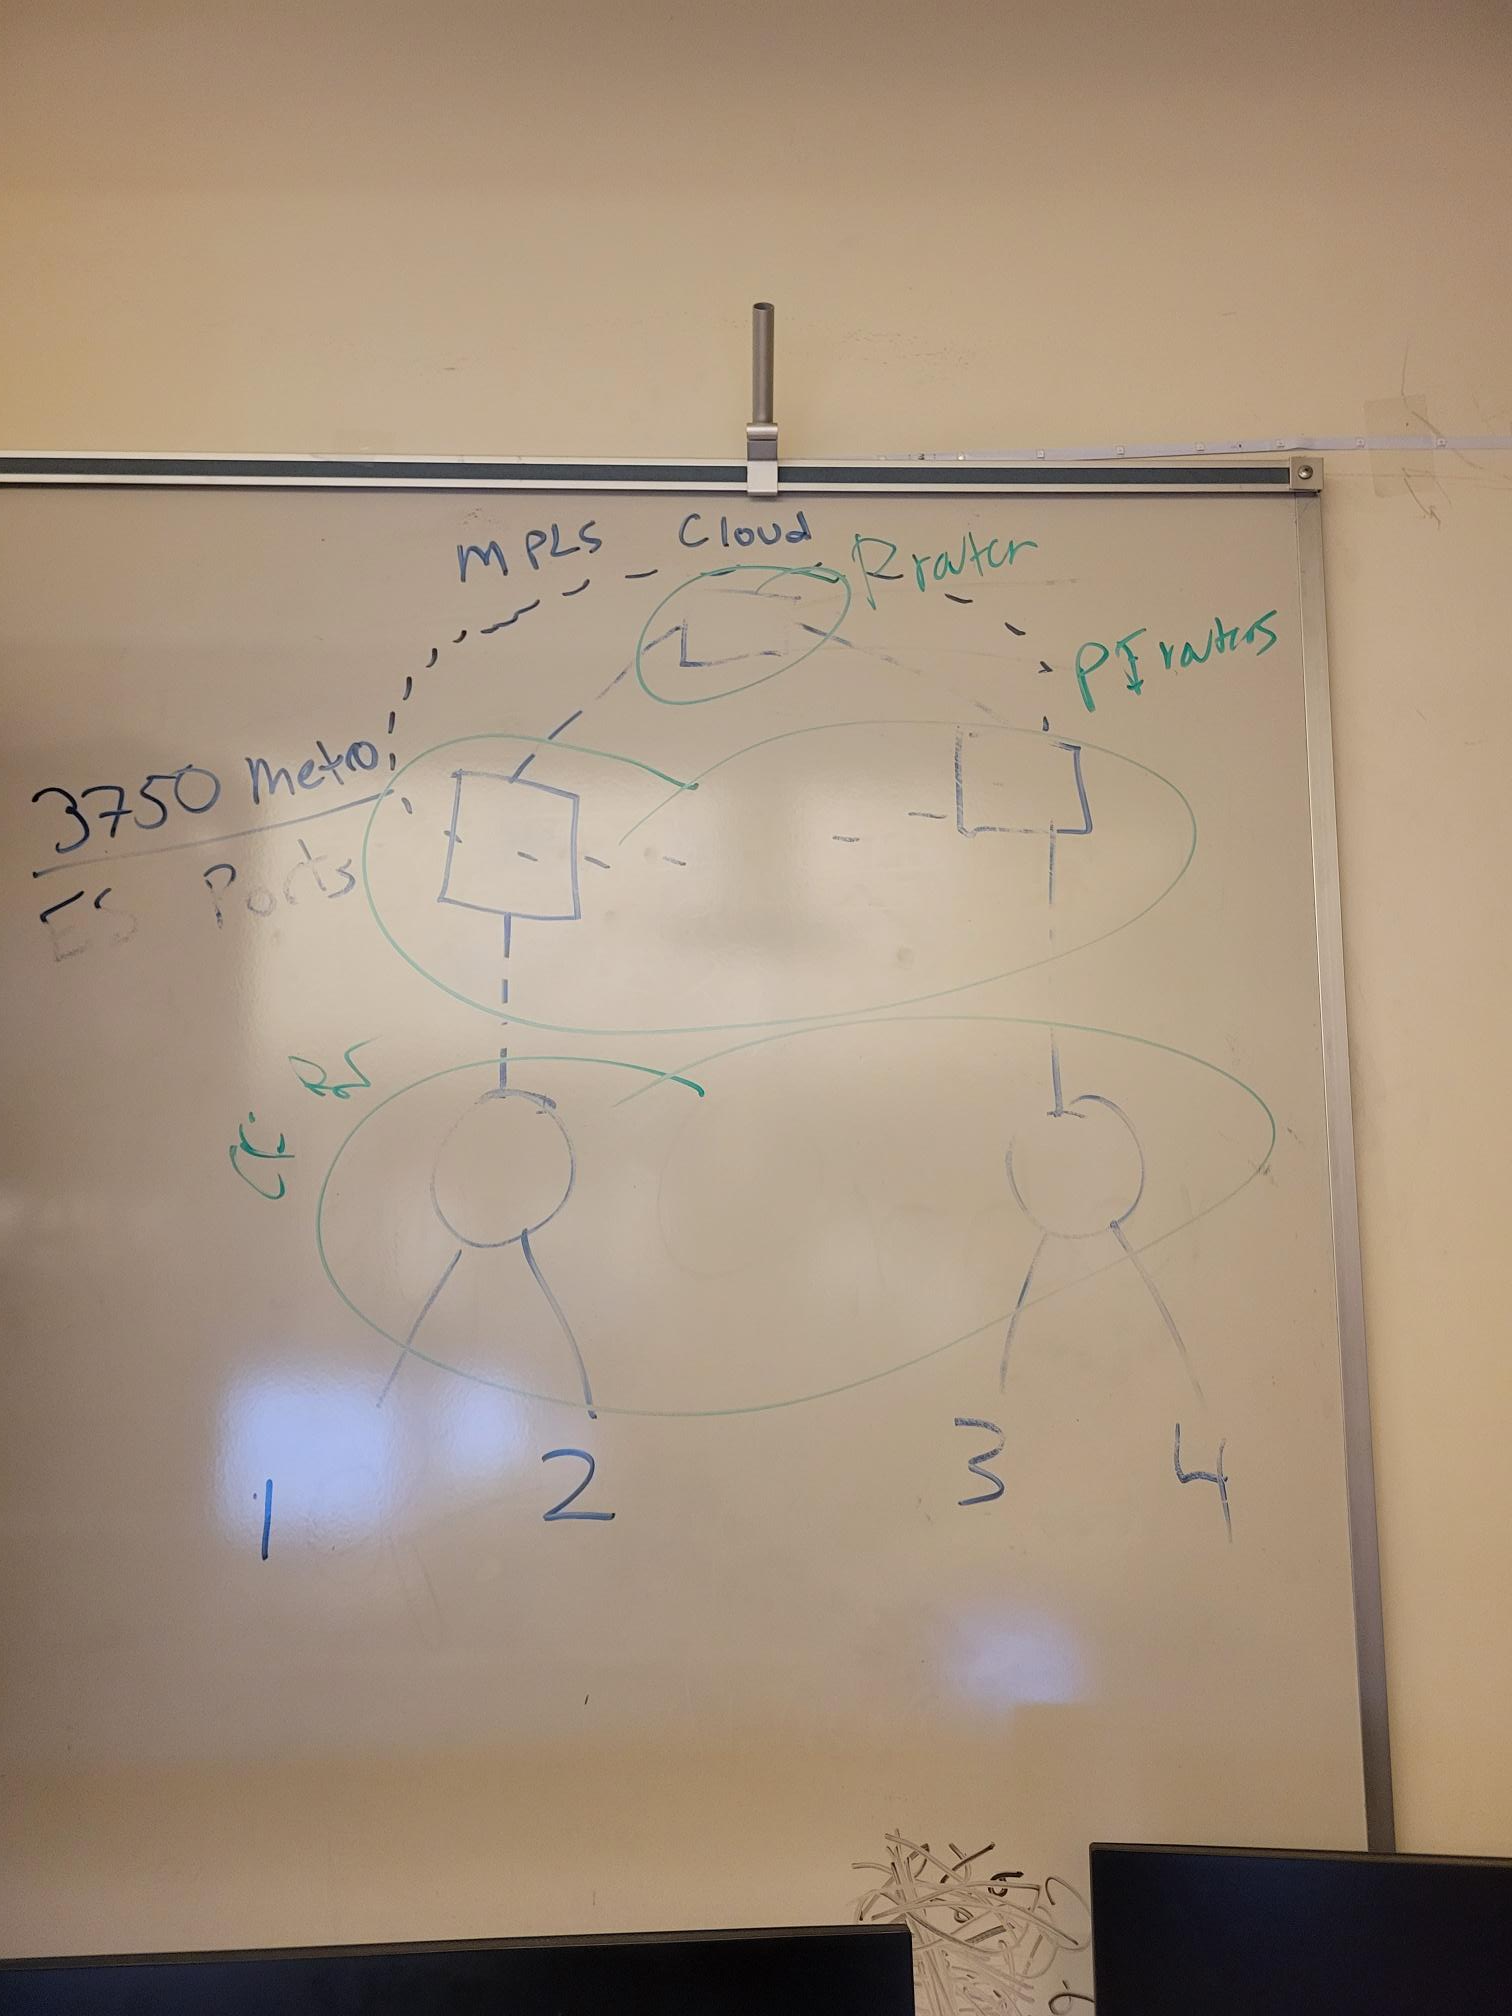 MPLS Cloud
P router
PE routers
3750 Metro
ES Ports
1 2 3 4